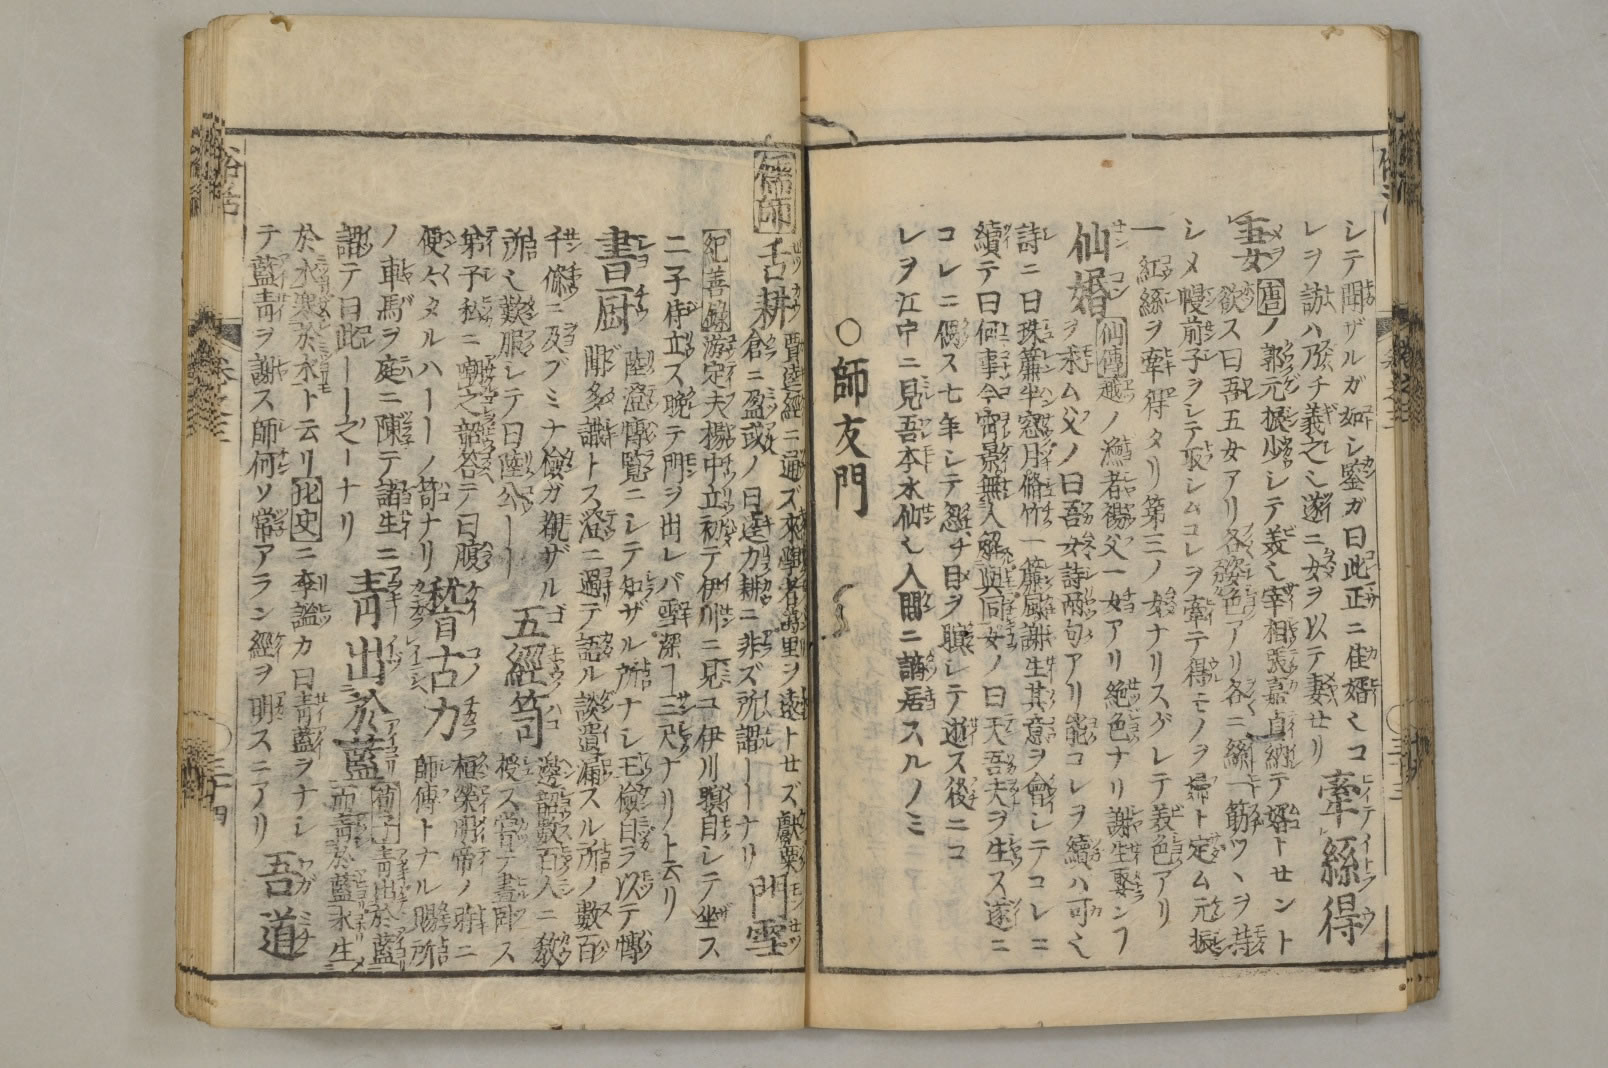 シテ聞ザルガ如シ鑒ガ曰此正ニ佳婿也コ
レヲ訪ハ乃チ義之也遂ニ女ヲ以テ妻セリ 牽絲得
妻女 唐ノ郭元振少シテ美也宰相張嘉貞納テ婿トセント
欲ス曰吾五女アリ各姿色アリ各ニ絲一筋ツヽヲ持
シメ幔前子ヲシテ取シムコレヲ牽テ得モノヲ婦ト定ム元振
一紅絲ヲ牽得タリ第三ノ女ナリスグレテ美色アリ
仙婚 仙傳 越ノ漁者楊父一女アリ絶色ナリ謝生娶ンフ
ヲ求ム父ノ曰吾女詩兩句アリ能コレヲ續ハ可也
詩ニ曰珠簾半窓月脩竹一簾風謝生其意ヲ會シテコレニ
續テ曰何事今宵景無人解與同女ノ曰天吾夫ヲ生ス遂ニ
コレニ偶ス七年シテ忽チ目ヲ瞑シテ逝ス後ニコ
レヲ江中ニ見吾本水仙也人間ニ謫居スルノミ
○師友門
儒師 舌耕 賈逵經ニ通ズ來學者萬里ヲ遠トセズ獻粟
倉ニ盈或ノ曰逵力耕ニ非ズ所謂ーーナリ 門雪
紀善錄 游定夫楊中立初テ伊川ニ見コ伊川瞑目シテ坐ス
二子侍立ス晩テ門ヲ出レバ雪深ー三尺ナリト云リ
書厨 陸澄博覧ニシテ知ザル所ナシ王儉自ラ以テ博
聞多識トス澄ニ過テ語ル談遺漏スル所ノ數百
千條ニ及ブミナ儉ガ覩ザル 五經笥 邊韶數百人ニ敎
所也歎服シテ曰陸公ーー 授ス嘗テ晝臥ス
弟子私ニ嘲之韶答テ曰腹 稽古力 桓榮明帝ノ時ニ
便々タルハーーノ笥ナリ 師傳トナル賜所
ノ車馬ヲ庭ニ陳テ諸生ニ 青出於藍 荀子 青出於藍
謂テ曰此ーー之ーナリ 而青於藍氷生
於水寒於水ト云リ 北史ニ李謐カ曰青藍ヲナシ
テ藍青ヲ謝ス師何ソ常アラン經ヲ明スニアリ 吾道
卷之三
三十四